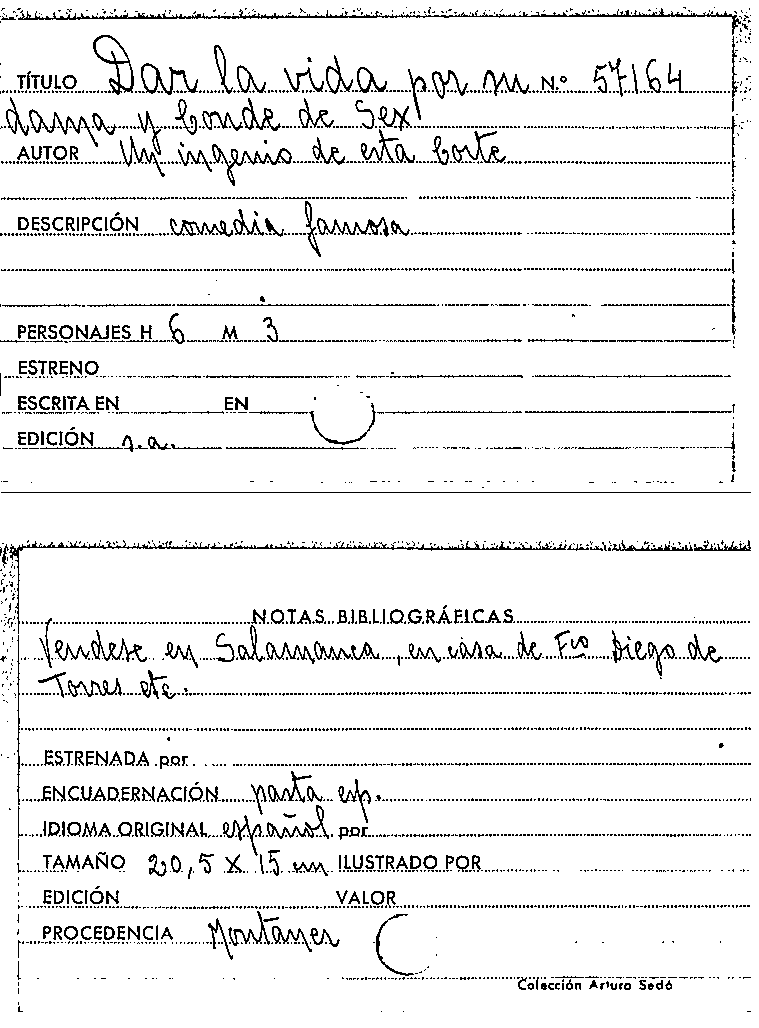 TÍTULO Dar la vida por su N.º 57164
dama y Conde de Sex
AUTOR Un ingenio de esta Corte
DESCRIPCIÓN comedia famosa
PERSONAJES H 6 M 3
ESTRENO
ESCRITA EN EN
EDICIÓN s.a.
NOTAS BIBLIOGRÁFICAS
Vendese en Salamanca, en casa de Fco Diego de
Torres etc.
ESTRENADA por
ENCUADERNACIÓN pasta esp.
IDIOMA ORIGINAL español por
TAMAÑO 20,5 X 15 cm ILUSTRADO POR
EDICIÓN VALOR
PROCEDENCIA Montaner
Colección Arturo Sedó